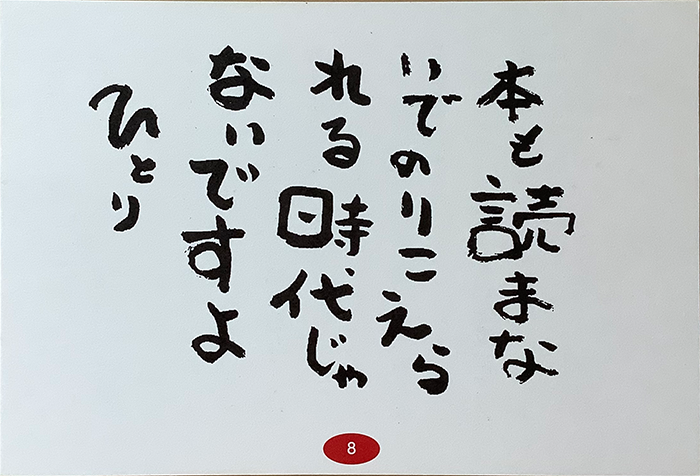 本も読まな
いでのりこえら
れる時代じゃ
ないですよ
ひとり
8